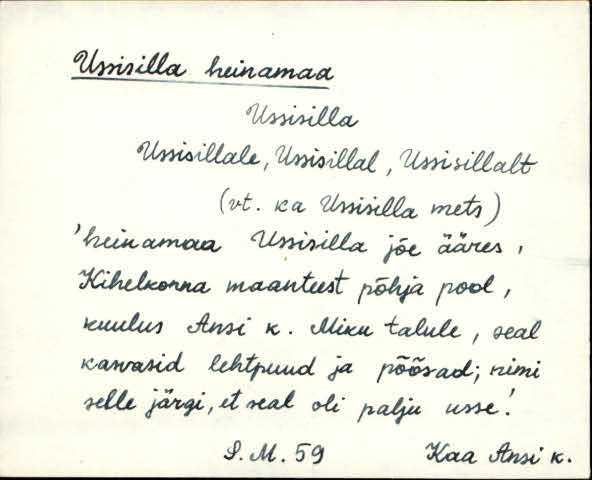 Ussisilla heinamaa
Ussisilla
Ussisillale, Ussisillal, Ussisillalt
(vt. ka Ussisilla mets)
'heinamaa Ussisilla jõe ääres,
Kihelkonna maanteest põhja pool,
kuulus Ansi k. Miku talule, seal
kasvasid lehtpuud ja põõsad; nimi
selle järgi, et seal oli palju usse.'
S. M. 59 Kaa Ansi k.